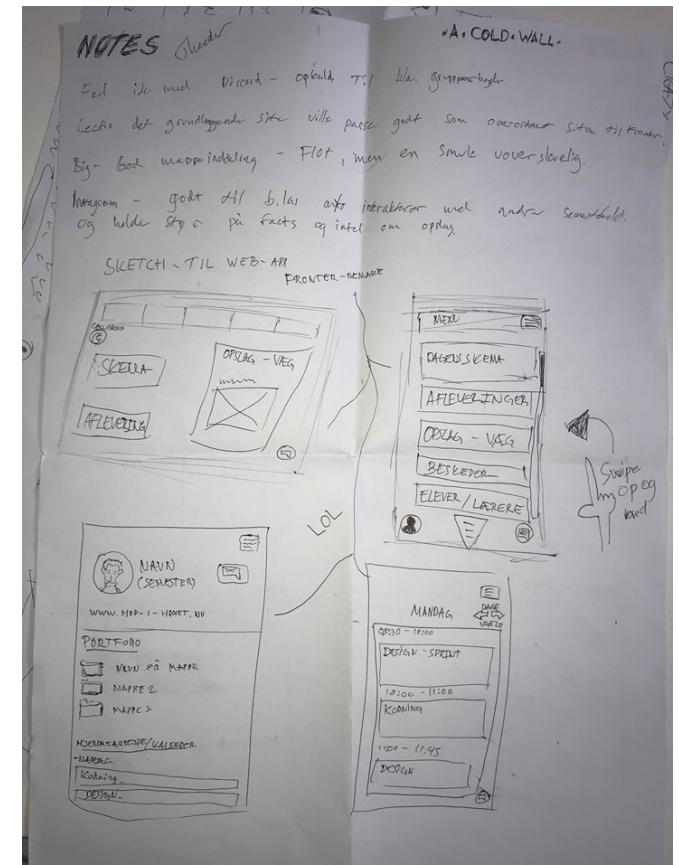 NOTES
•A•COLD•WALL•
Fed ide med Discord - opkald Til bla. gruppearbejde
Lectio det grundlæggende site ville passe godt som overordnet site til Fronter.
Big- God mappeinddeling - Flot, men en smule uoverskuelig.
Instagram - godt til b.la. interaktioner med andre
og holde styr på facts og intel om opslag.
SKETCH - TIL WEB-APP
FRONTER-REMAKE
SKEMA
OPSLAG - VÆG
AFLEVERING
MENU
DAGENS SKEMA
AFLEVERINGER
OPSLAG - VÆG
BESKEDER
ELEVER / LÆRERE
Swipe
op og
ned
LOL
NAVN
(SEMESTER)
PORTFOLIO
NAVN PÅ MAPPE
MAPPE 2
MAPPE 3
/KALENDER
-MANDAG
Kodning
DESIGN
MANDAG
DAGE
UGE 20
08:30 - 10:00
DESIGN - SPRINT
10:00 - 11:00
KODNING
11:00 - 11:45
DESIGN